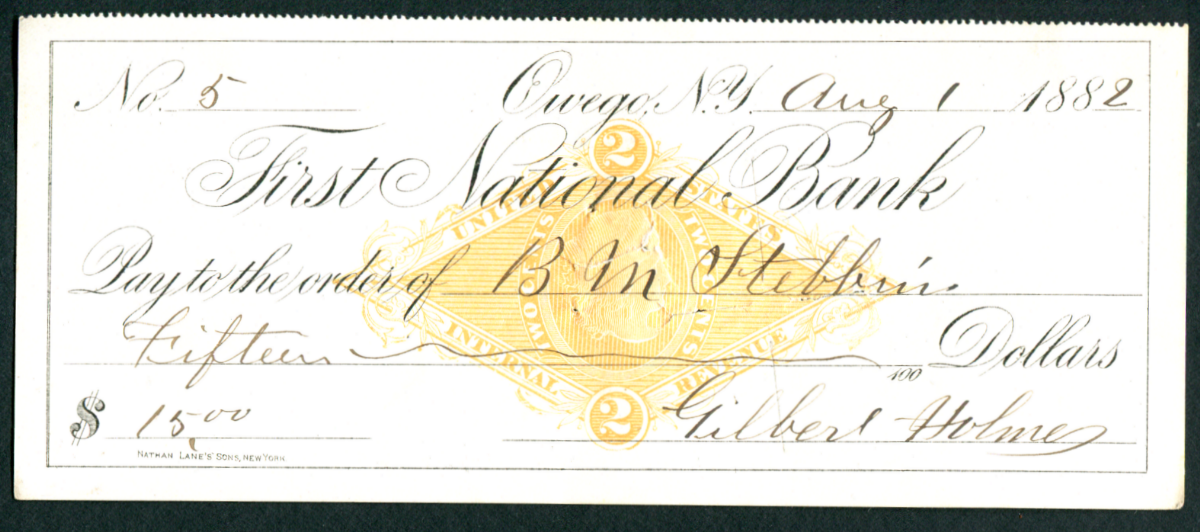 No. 5 Owego, N.Y. Aug 1 1882
First National Bank
2
UNITED STATES
TWO CENTS TWO CENTS
Pay to the order of B M Stebbins
Fifteen /100 Dollars
INTERNAL REVENUE
2
$ 15.00 Gilbert Holmes
NATHAN LANE'S SONS, NEW YORK